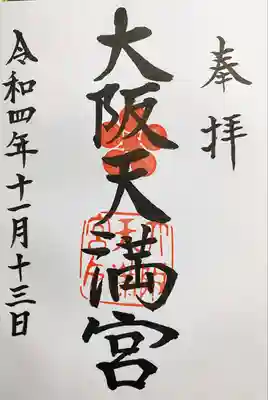 奉拝
大阪天満宮
令和四年十一月十三日